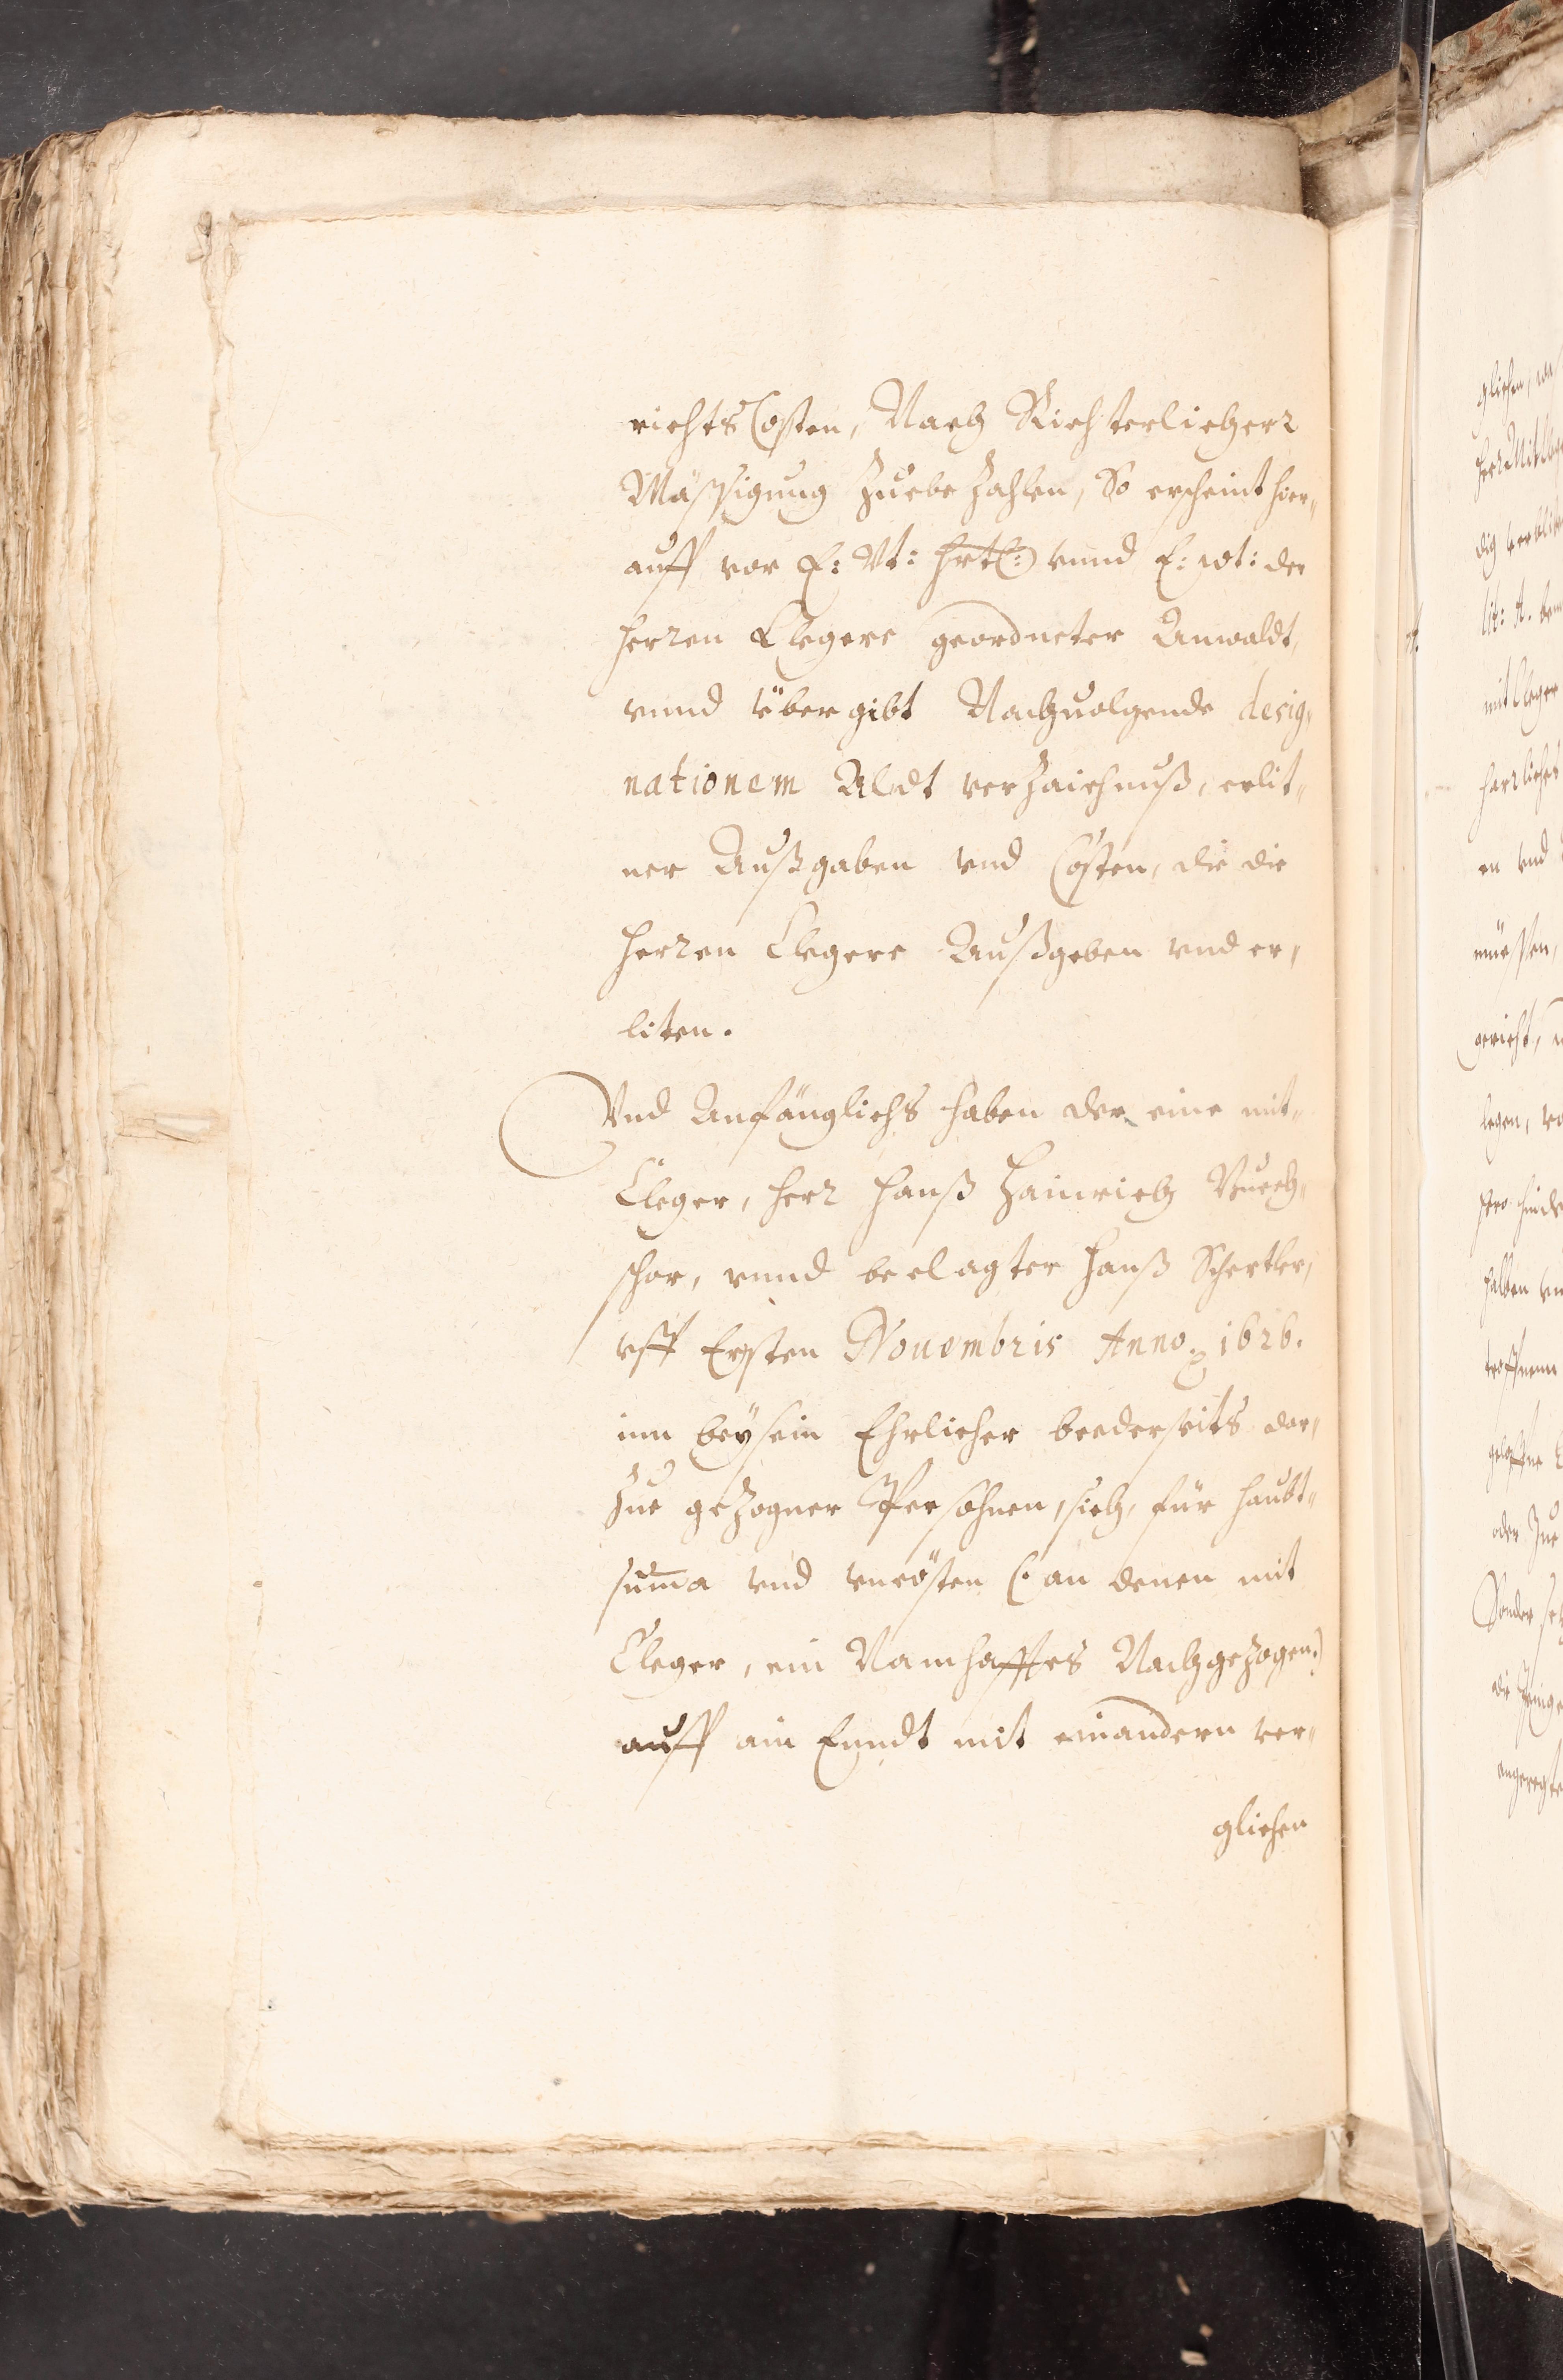 richts Costen, Nach Richterlicherr
Mässigung Zuebe Zahlen, So erscheint hier„
auff vor E: Vt: hrtl: vnnd E: wt: der
herren Clegere geordneter Anwaldt,
vnnd Übergibt Nachuolgende desig„
nationem Aldt verZaichnuß, erlit„
ner Außgaben vnd Costen, die die
herren Clegere Außgeben vnd er„
liten.
Vnd Anfänglichs haben der eine mit„
Cleger, herr Hanß Hainrich
schor, vnnd beclagter Hanß Schertler,
vff Ersten Nouembris Anno 1626.
inn beysein Ehrlicher beederseits dar„
Zue geZogner Persohnen, sich, für haubt„
summa vnd vncösten (: an denen mit
Cleger, ein Namhafftes NachgeZogen:)
auff ain Enndt mit einandern ver„
glichen
glichen,
mit Cleger
en vnd
müessen,
gericht,
legen,
halben
oder Zue
Sonder
angeregte